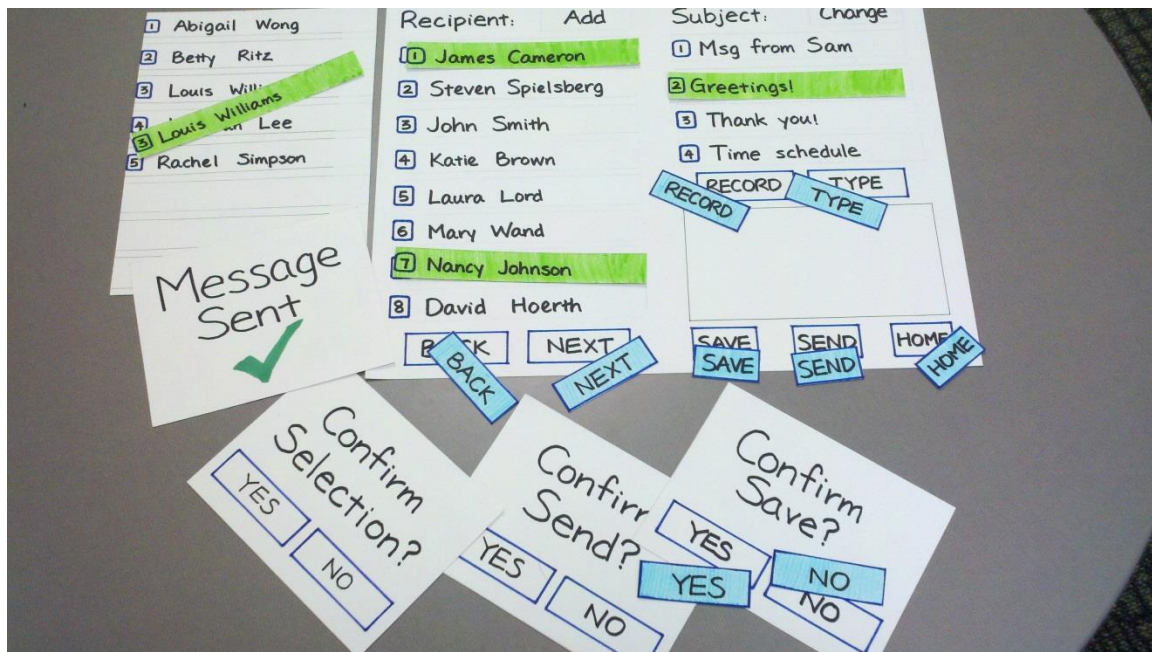 1 Abigail Wong
2 Betty Ritz
3 Louis
3 Louis Williams
4 Lee
5 Rachel Simpson
Message
Sent
Recipient: Add
1 James Cameron
2 Steven Spielsberg
3 John Smith
4 Katie Brown
5 Laura Lord
6 Mary Wand
7 Nancy Johnson
8 David Hoerth
BACK NEXT
BACK NEXT
Subject: Change
1 Msg from Sam
2 Greetings!
3 Thank you!
4 Time schedule
RECORD TYPE
RECORD TYPE
SAVE SEND HOME
SAVE SEND HOME
Confirm
Selection?
YES NO
Confirm
Send?
YES NO
Confirm
Save?
YES NO
YES NO